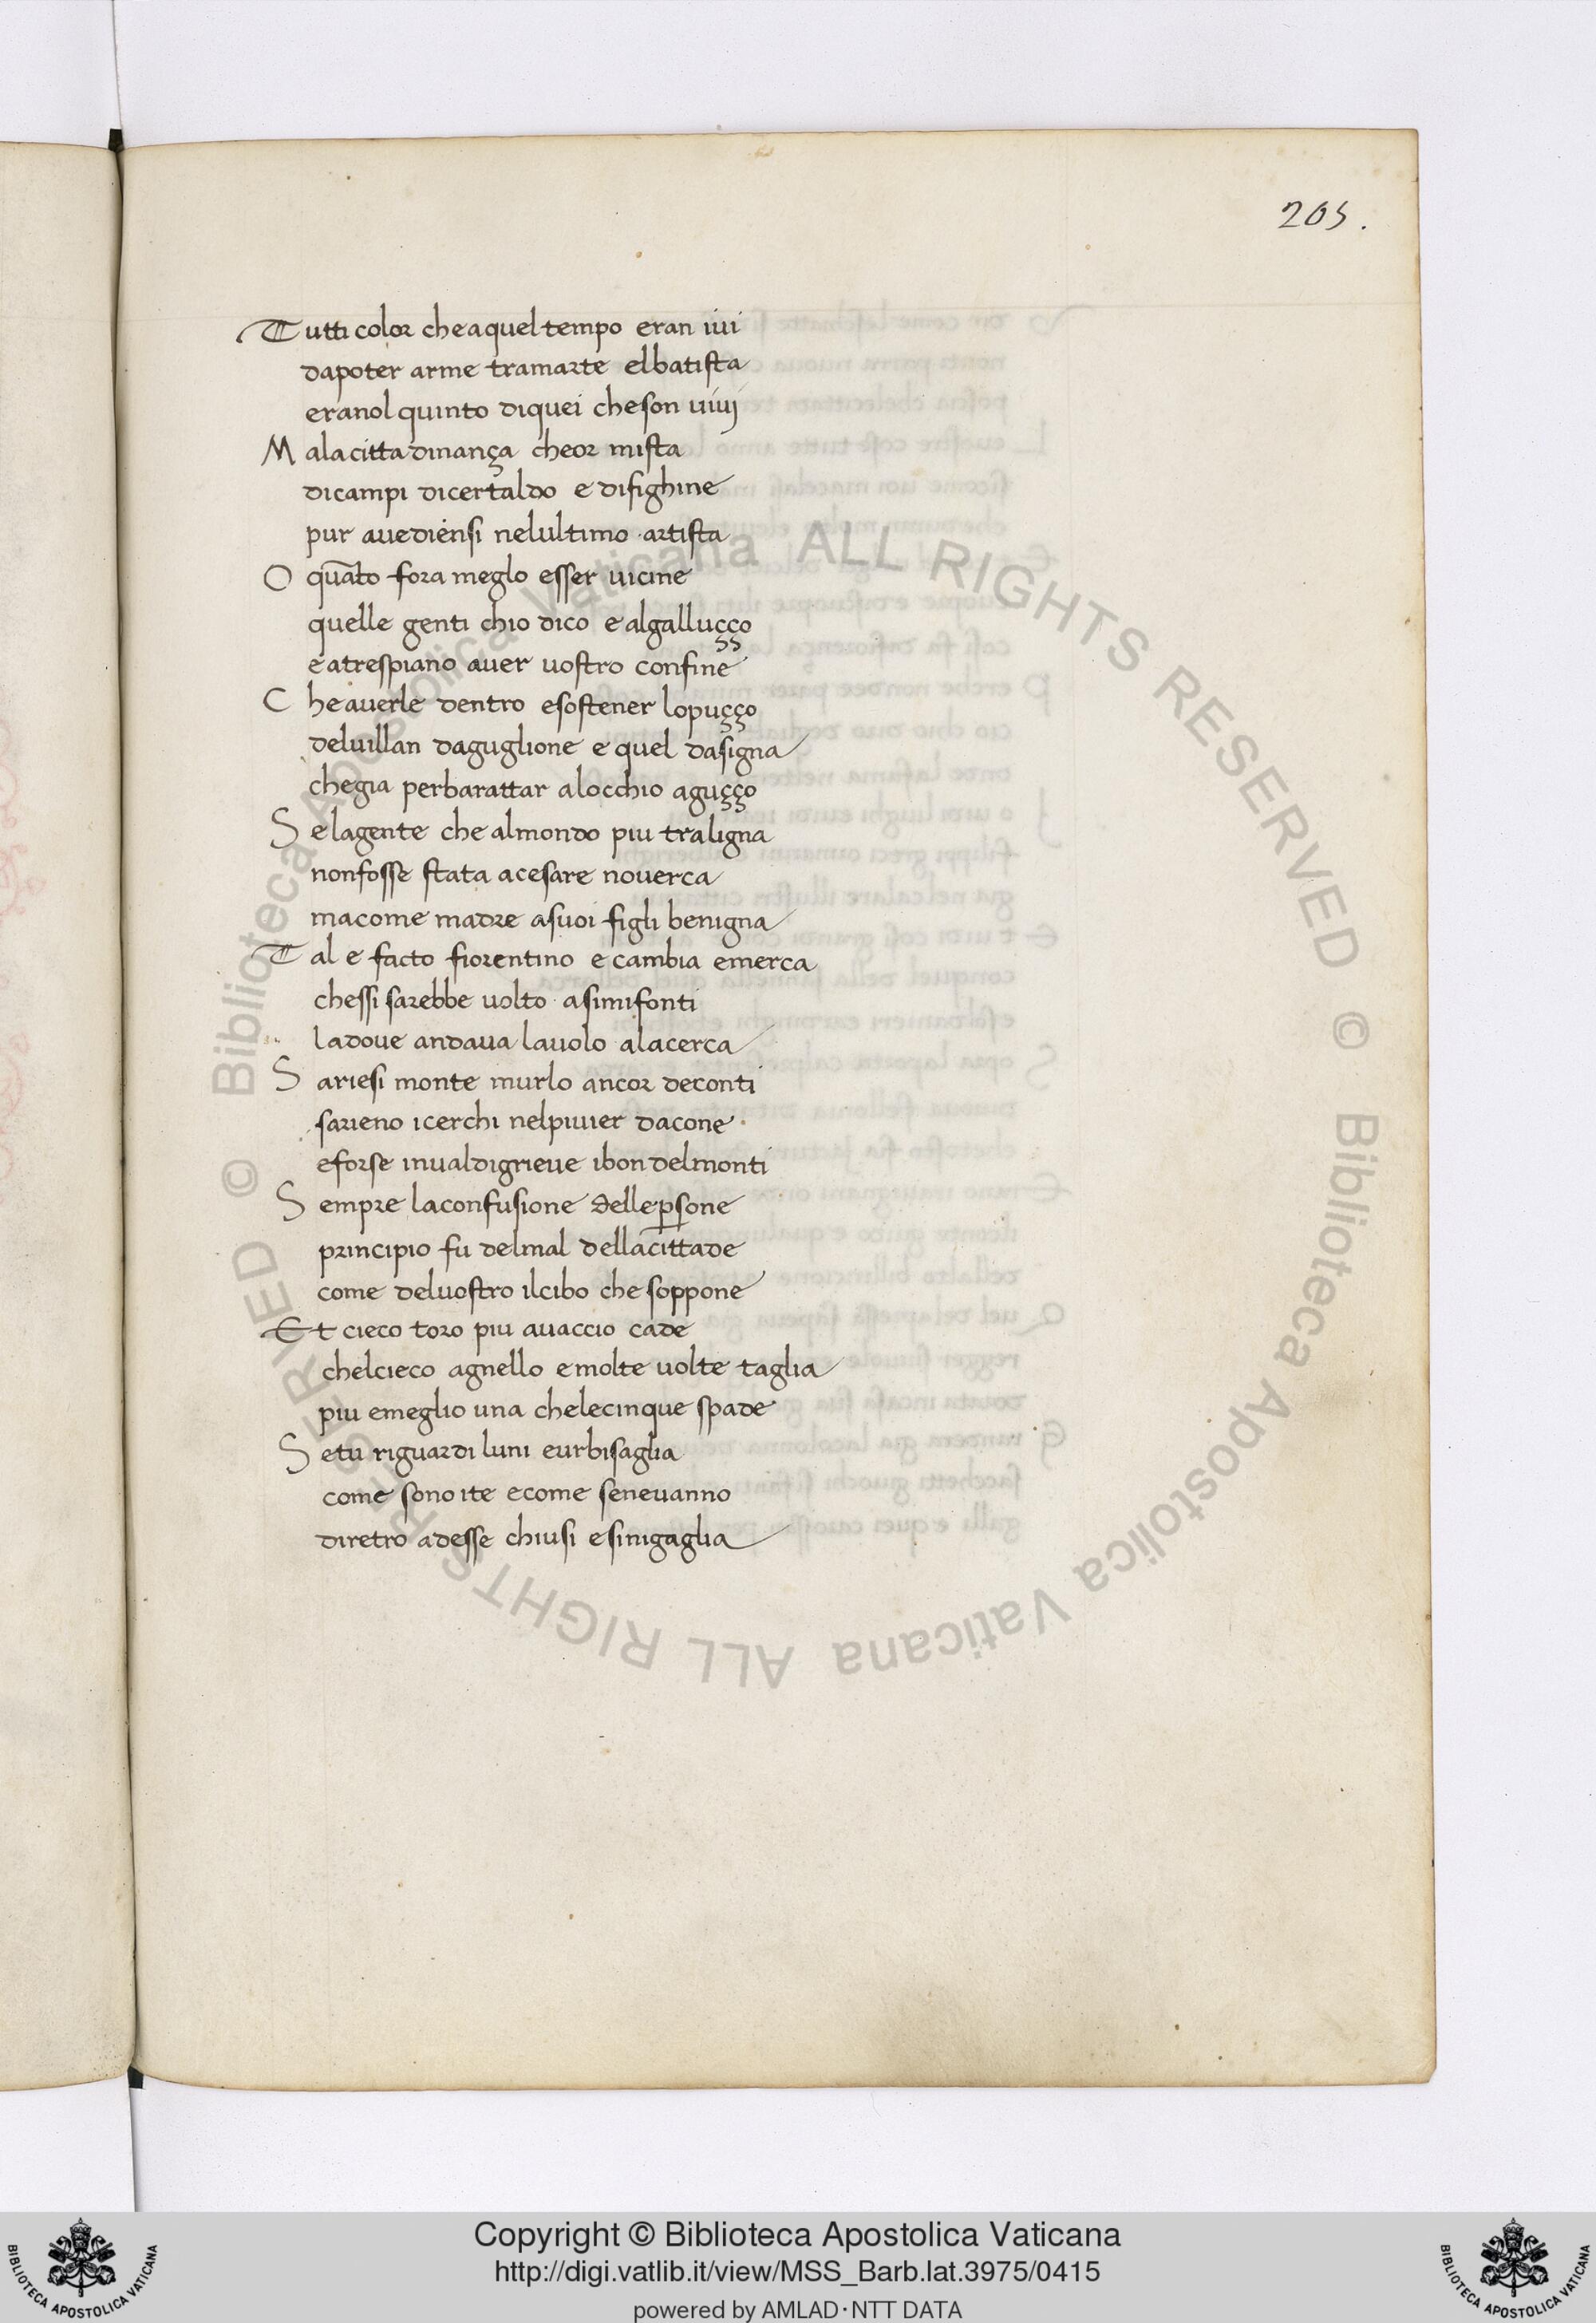 205.
Tutti color cheaquel tempo eran iui
dapoter arme tramarte elbatista
eranol quinto diquei cheson uiuj
Malacittadinança cheor mista
dicampi dicertaldo e difighine
pur auediensi nelultimo artista
O quāto fora meglo esser uicine
quelle genti chio dico e algalluçço
eatrespiano auer uostro confine
Cheauerle dentro esostener lopuçço
deluillan daguglione e quel dasigna
chegia perbarattar alocchio aguçço
Selagente che almondo piu traligna
nonfosse stata acesare nouerca
macome madre asuoi figli benigna
Tal e facto fiorentino e cambia emerca
chessi sarebbe uolto asimifonti
ladoue andaua lauolo alacerca
Sariesi monte murlo ancor deconti
sarieno icerchi nelpiuier dacone
eforse inualdigrieue ibondelmonti
Sempre laconfusione delleꝑsone
principio fu delmal dellacittade
come deluostro ilcibo che soppone
Et cieco toro piu auaccio cade
chelcieco agnello emolte uolte taglia
piu emeglio una chelecinque spade
Setu riguardi luni eurbisaglia
come sono ite ecome seneuanno
diretro adesse chiusi esinigaglia
© Biblioteca Apostolica Vaticana ALL RIGHTS RESERVED © Biblioteca Apostolica Vaticana ALL RIGHTS RESERVED
Copyright © Biblioteca Apostolica Vaticana
http://digi.vatlib.it/view/MSS_Barb.lat.3975/0415
powered by AMLAD·NTT DATA
BIBLIOTECA APOSTOLICA VATICANA
BIBLIOTECA APOSTOLICA VATICANA